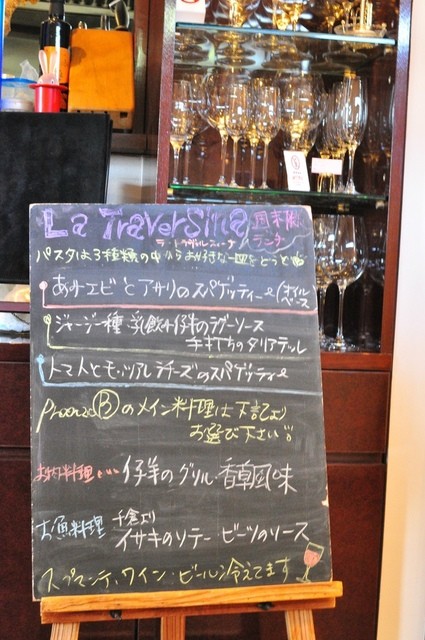 La Traversina 週末限定
ラ・トラヴェルシーナ ランチ
パスタは3種類の中からお好きな一皿をどうぞ
あみエビとアサリのスパゲッティーニ(オイルベース)
ジャージー種 乳飲み仔牛のラグーソース
手打ちのタリアテッレ
トマトとモッツアレラチーズのスパゲッティーニ
Pranzo Bのメイン料理は下記より
お選び下さい!!
お肉料理・・・仔羊のグリル・香草風味
お魚料理 千倉より
イサキのソテー・ビーツのソース
スプマンテ、ワイン・ビール冷えてます